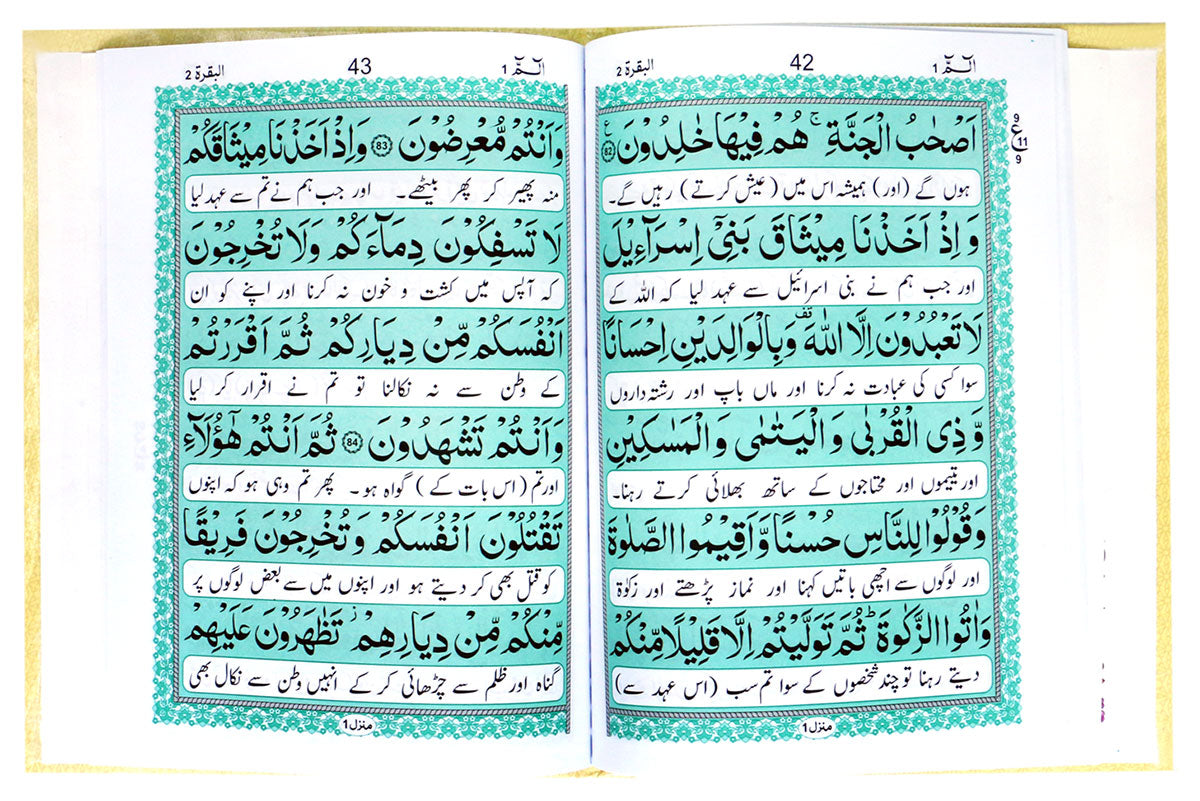 الٓمّٓ 1 42 البقرة 2
اَصْحٰبُ الْجَنَّةِ ۚ هُمْ فِيْهَا خٰلِدُوْنَ 82 ع
9 ع 11 9
ہوں گے (اور) ہمیشہ اس میں (عیش کرتے) رہیں گے۔
وَاِذْ اَخَذْنَا مِيْثَاقَ بَنِيْٓ اِسْرَآءِيْلَ
اور جب ہم نے بنی اسرائیل سے عہد لیا کہ اللہ کے
لَا تَعْبُدُوْنَ اِلَّا اللّٰهَ ۣ وَبِالْوَالِدَيْنِ اِحْسَانًا
سوا کسی کی عبادت نہ کرنا اور ماں باپ اور رشتہ داروں
وَّ ذِي الْقُرْبٰى وَ الْيَتٰمٰى وَ الْمَسٰكِيْنِ
اور یتیموں اور محتاجوں کے ساتھ بھلائی کرتے رہنا۔
وَقُوْلُوْا لِلنَّاسِ حُسْنًا وَّاَقِيْمُوا الصَّلٰوةَ
اور لوگوں سے اچھی باتیں کہنا اور نماز پڑھتے اور زکوٰۃ
وَاٰتُوا الزَّكٰوةَ ؕ ثُمَّ تَوَلَّيْتُمْ اِلَّا قَلِيْلًا مِّنْكُمْ
دیتے رہنا تو چند شخصوں کے سوا تم سب (اس عہد سے)
منزل 1
الٓمّٓ 1 43 البقرة 2
وَاَنْتُمْ مُّعْرِضُوْنَ 83 وَاِذْ اَخَذْنَا مِيْثَاقَكُمْ
منہ پھیر کر پھر بیٹھے۔ اور جب ہم نے تم سے عہد لیا
لَا تَسْفِكُوْنَ دِمَآءَكُمْ وَلَا تُخْرِجُوْنَ
کہ آپس میں کشت و خون نہ کرنا اور اپنے کو ان
اَنْفُسَكُمْ مِّنْ دِيَارِكُمْ ثُمَّ اَقْرَرْتُمْ
کے وطن سے نہ نکالنا تو تم نے اقرار کر لیا
وَاَنْتُمْ تَشْهَدُوْنَ 84 ثُمَّ اَنْتُمْ هٰٓؤُلَآءِ
اور تم (اس بات کے) گواہ ہو۔ پھر تم وہی ہو کہ اپنوں
تَقْتُلُوْنَ اَنْفُسَكُمْ وَتُخْرِجُوْنَ فَرِيْقًا
کو قتل بھی کر دیتے ہو اور اپنوں میں سے بعض لوگوں پر
مِّنْكُمْ مِّنْ دِيَارِهِمْ ؗ تَظٰهَرُوْنَ عَلَيْهِمْ
گناہ اور ظلم سے چڑھائی کر کے انہیں وطن سے نکال بھی
منزل 1